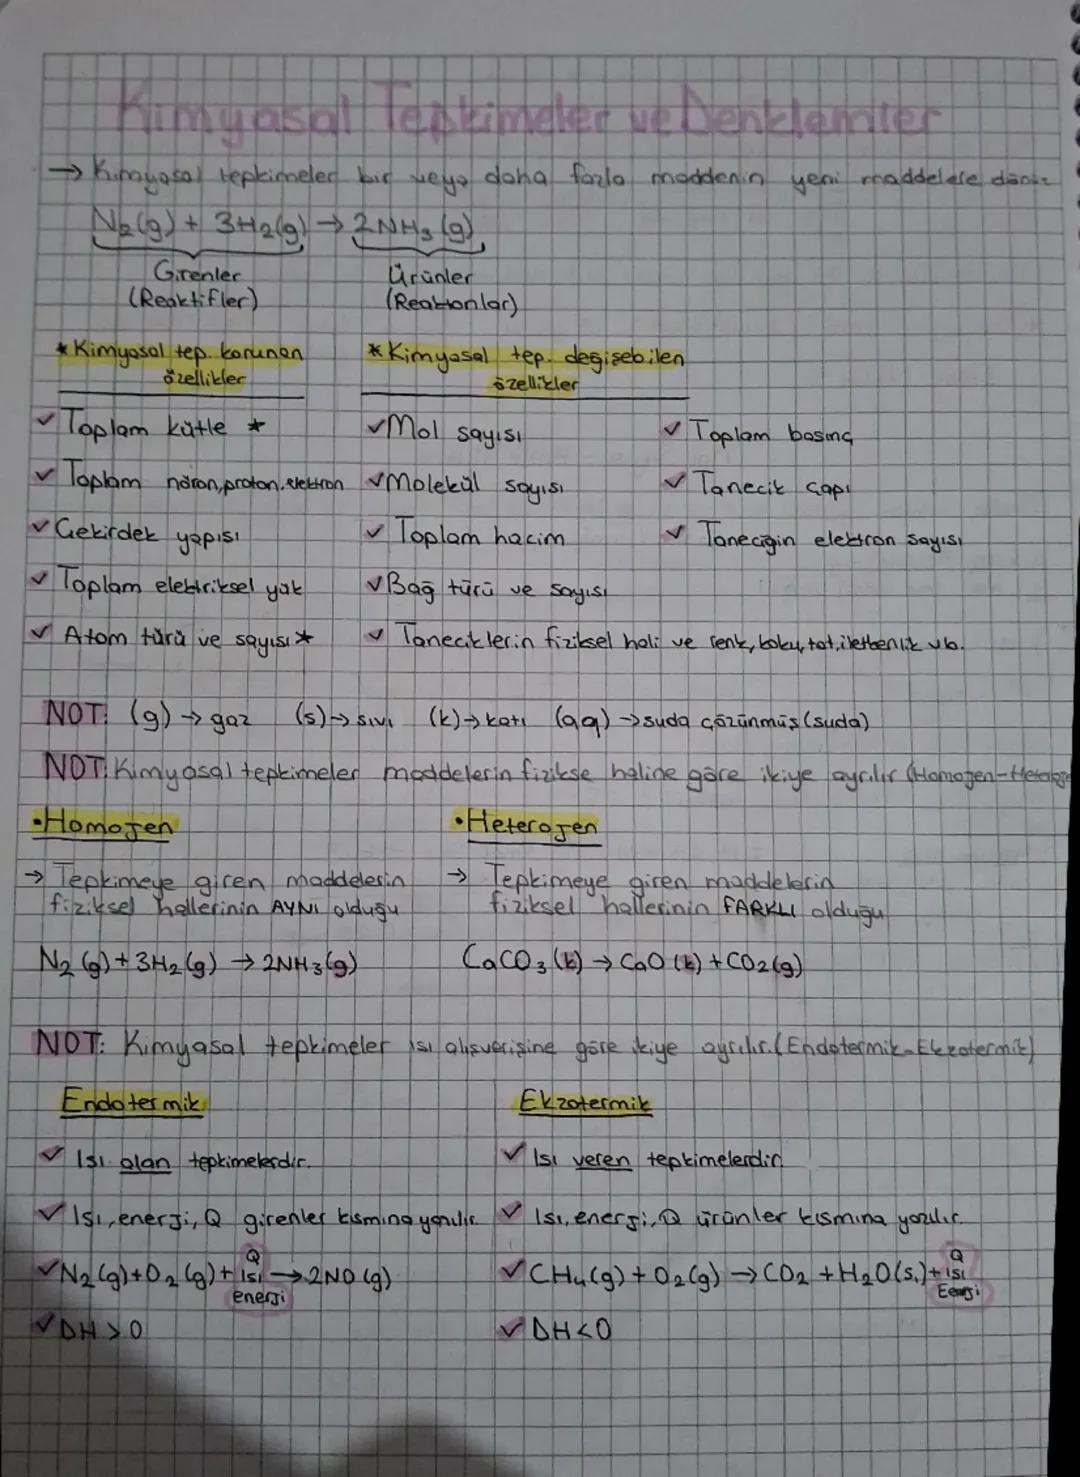 Kimyasal Tepkimeler ve Denklemler
→ Kimyasal tepkimeler bir veya daha fazla maddenin yeni maddelere dönüş
N2(g) + 3H2(g) → 2NH3(g)
Girenler Ürünler
(Reaktifler) (Reaktonlar)
*Kimyasal tep. korunan özellikler
*Kimyasal tep. değişebilen özellikler
✓ Toplam kütle *
✓ Mol sayısı
✓ Toplam basınç
✓ Toplam nötron, proton, elektron
✓ Molekül sayısı
✓ Tanecik çapı
✓ Çekirdek yapısı
✓ Toplam hacim
✓ Taneciğin elektron sayısı
✓ Toplam elektriksel yük
✓ Bağ türü ve sayısı
✓ Atom türü ve sayısı *
✓ Taneciklerin fiziksel hali ve renk, koku, tat, iletkenlik vb.
NOT: (g) → gaz (s) → sıvı (k) → katı (aq) → suda çözünmüş (suda)
NOT: Kimyasal tepkimeler maddelerin fizikse haline göre ikiye ayrılır (Homojen-
• Homojen
→ Tepkimeye giren maddelerin
fiziksel hallerinin AYNI olduğu
N2(g) + 3H2(g) → 2NH3(g)
• Heterojen
→ Tepkimeye giren maddelerin
fiziksel hallerinin FARKLI olduğu
CaCO3(k) → CaO(k) + CO2(g)
NOT: Kimyasal tepkimeler ısı alışverişine göre ikiye ayrılır. (Endotermik-Ekzotermik)
Endotermik
✓ Isı alan tepkimelerdir.
✓ Isı, enerji, Q girenler kısmına yazılır.
✓ N2(g) + O2(g) + Q ısı enerji → 2NO(g)
✓ DH > 0
Ekzotermik
✓ Isı veren tepkimelerdir
✓ Isı, enerji, Q ürünler kısmına yazılır.
✓ CH4(g) + O2(g) → CO2 + H2O(s.) + Q ısı Eenrji
✓ DH < 0